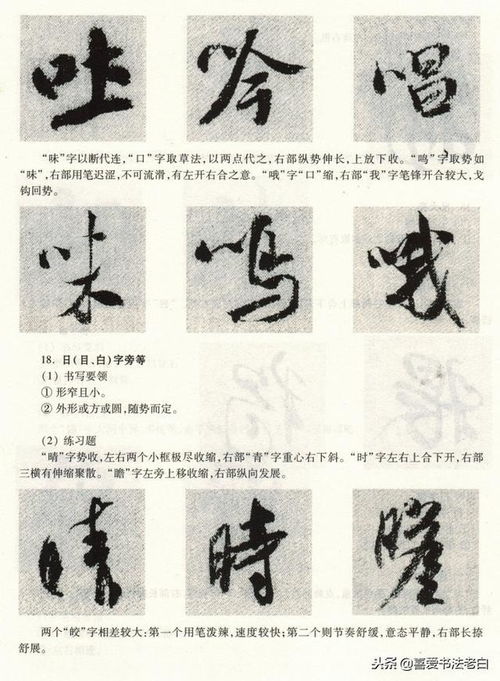 吐 吟 唱
“味”字以断代连，“口”字取草法，以两点代之，右部纵势伸长，上放下收。“鸣”字取势如
“味”，右部用笔迟涩，不可流滑，有左开右合之意。“哦”字“口”缩，右部“我”字笔锋开合较大，戈
钩回势。
味 鳴 哦
18. 日(目、白)字旁等
(1) 书写要领
① 形窄且小。
② 外形或方或圆，随势而定。
(2) 练习题
“晴”字势收，左右两个小框极尽收缩，右部“青”字重心右下斜。“时”字左右上合下开，右部
三横有伸缩聚散。“瞻”字左旁上移收缩，右部纵向发展。
晴 時
两个“皎”字相差较大：第一个用笔泼辣，速度较快；第二个则节奏舒缓，意态平静，右部长捺
舒展。
头条@喜爱书法老白